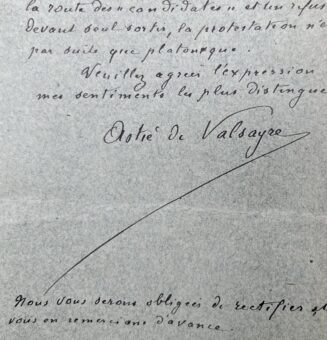 la route des « candidates » et un refus
devant seul sortir, la protestation n'é
par suite que platonique.
Veuillez agréer l'expression
mes sentiments les plus distingué
Astié de Valsayre
Nous vous serons obligées de rectifier et
vous en remercions d'avance.